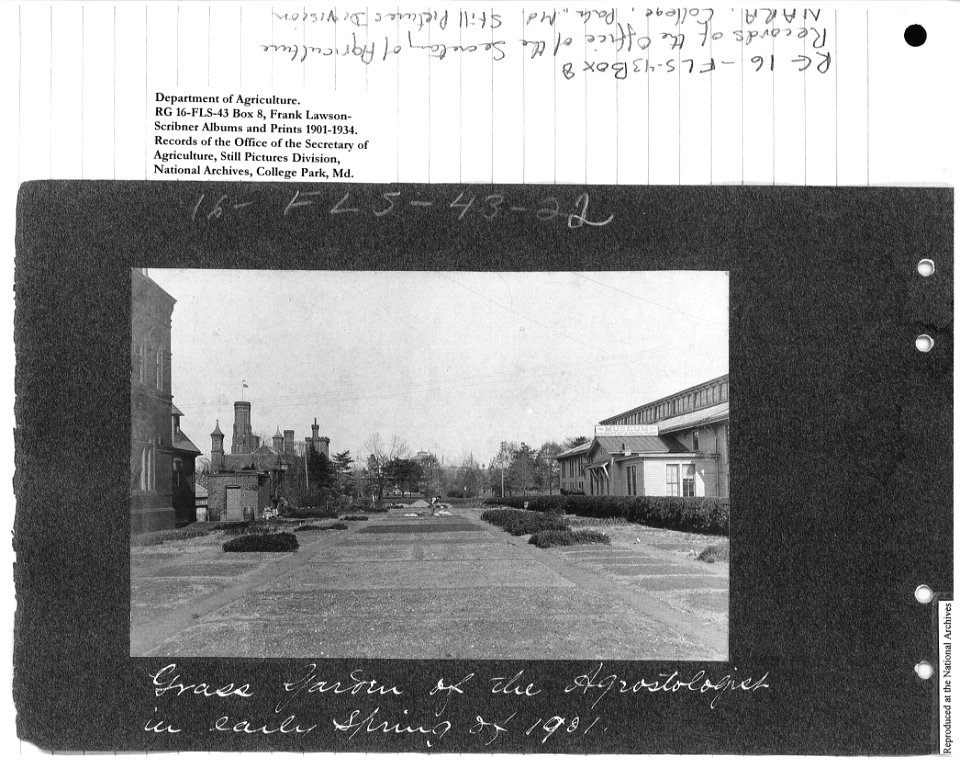 RG 16 - FLS-43 Box 8
Records of the Office of the Secretary of Agriculture
NARA, College, Park, Md. Still Pictures Division
Department of Agriculture.
RG 16-FLS-43 Box 8, Frank Lawson-
Scribner Albums and Prints 1901-1934.
Records of the Office of the Secretary of
Agriculture, Still Pictures Division,
National Archives, College Park, Md.
16- FLS-43-22
MUSEUM
Grass Garden of the Agrostologist
in early Spring of 1901.
Reproduced at the National Archives